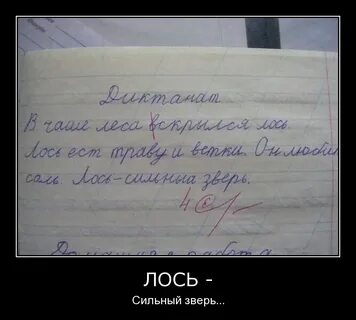 Диктанат
В чаще леса вскрылся лось.
Лось ест траву и ветки. Он любит
соль. Лось-сильныа зверь.
4 С
ЛОСЬ -
Сильный зверь...